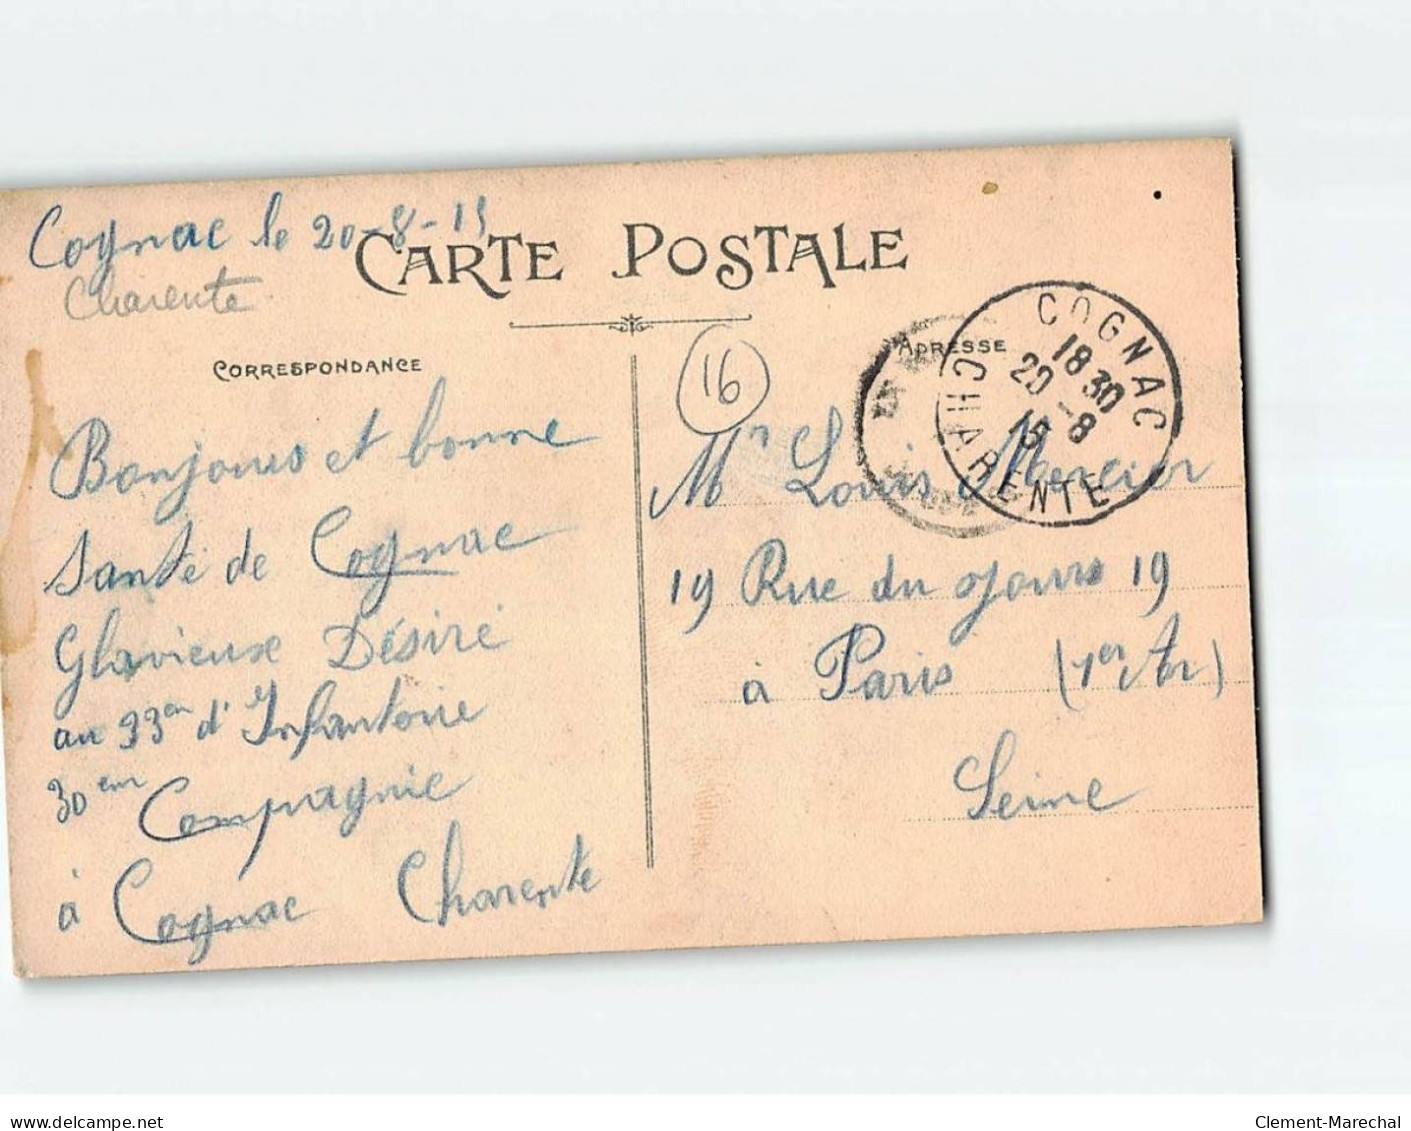 Cognac le 20-8-15
Charente
CARTE POSTALE
CORRESPONDANCE
ADRESSE
16
COGNAC
18 30
20 -8
15
CHARENTE
Bonjours et bonne
Santé de Cognac
Glavieuse Désiré
au 93em d'Infanterie
30eme Compagnie
à Cognac Charente
Mr Louis Mercier
19 Rue du Jours 19
à Paris (1er Ar)
Seine
www.delcampe.net
Clement-Marechal